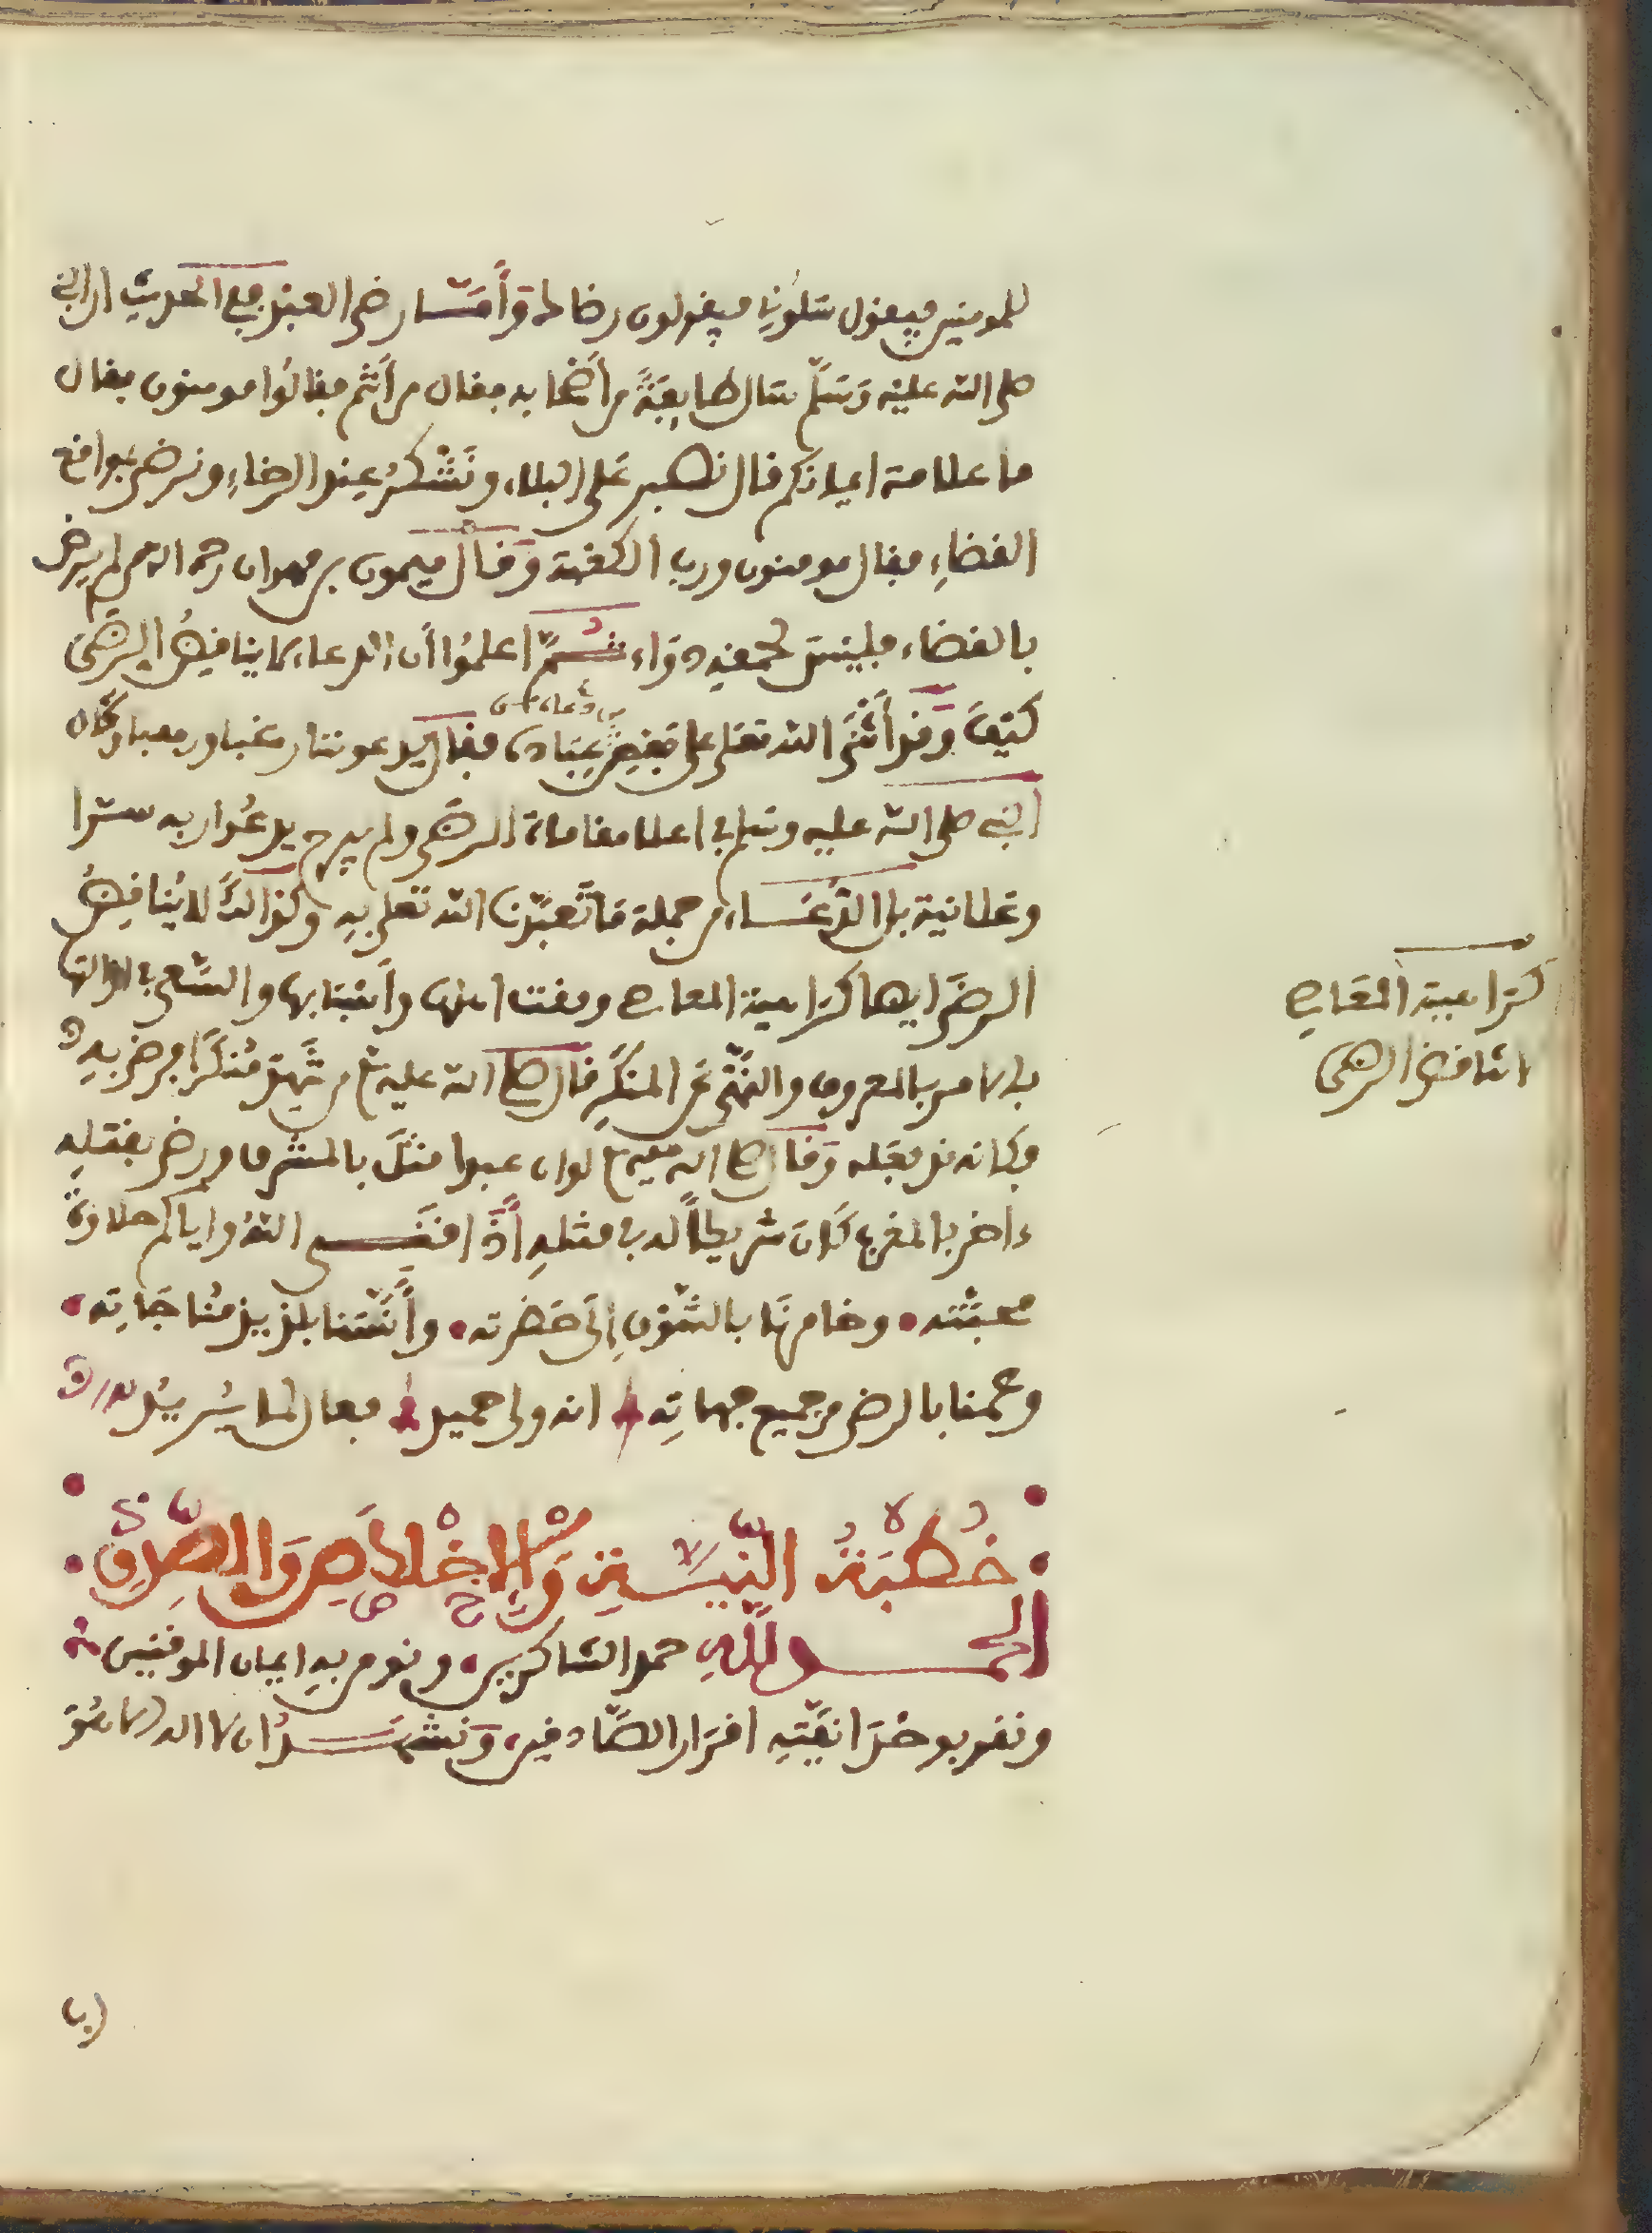 للمومنين فيقول سلوني فيقولون رضاك وأما رضى العبد ففي الحديث ان النبي
صلى الله عليه وسلم سال طايفة من أصحابه فقال من أنتم فقالوا مومنون فقال
ما علامة ايمانكم قال نصبر على البلاء ونشكر عند الرخاء ونرضى بمواقع
القضاء فقال مومنون ورب الكعبة وقال ميمون بن مهران رحمه الله من لم يرض
بالقضاء فليس لحمقه دواء ثم اعلموا أن الدعاء لا ينافيض الرضى
كيف وقد أثنى الله تعلى على بعض عباده فقال يدعوننا رغبا ورهبا وكان
النبي صلى الله عليه وسلم في اعلا مقامات الرضى ولم يبرح يدعوا ربه سرا
وعلانية بل الدعاء من جملة ما تعبدنا الله تعلى به وكذالك لا يناقض
الرضى ايضا كراهية المعاصي ومقت اهلها وأسبابها والسعي في ازالتها
بالامر بالمعروف والنهي عن المنكر قال صلى الله عليه من شهد منكرا فرضي به
فكانه قد فعله وقال صلى الله عليه لو ان عبدا قتل بالمشرق ورضي بقتله
ءاخر بالمغرب كان شريكا له في قتله أذاقني الله واياكم حلاوة
محبته • وخامرنا بالشوق إلى حضرته • وأنسنا بلذيذ مناجاته •
وعمنا بالرضى من جميع جهاته انه ولي حميد فعال لما يريد
خطبة النية والإخلاص والصدق
الحمد لله حمد الشاكرين • ونومن به ايمان الموقنين
ونقر بوحدانيته اقرار الصادقين ونشهد ان لا اله الا هو
كراهية المعاصي
لا تناقض الرضى